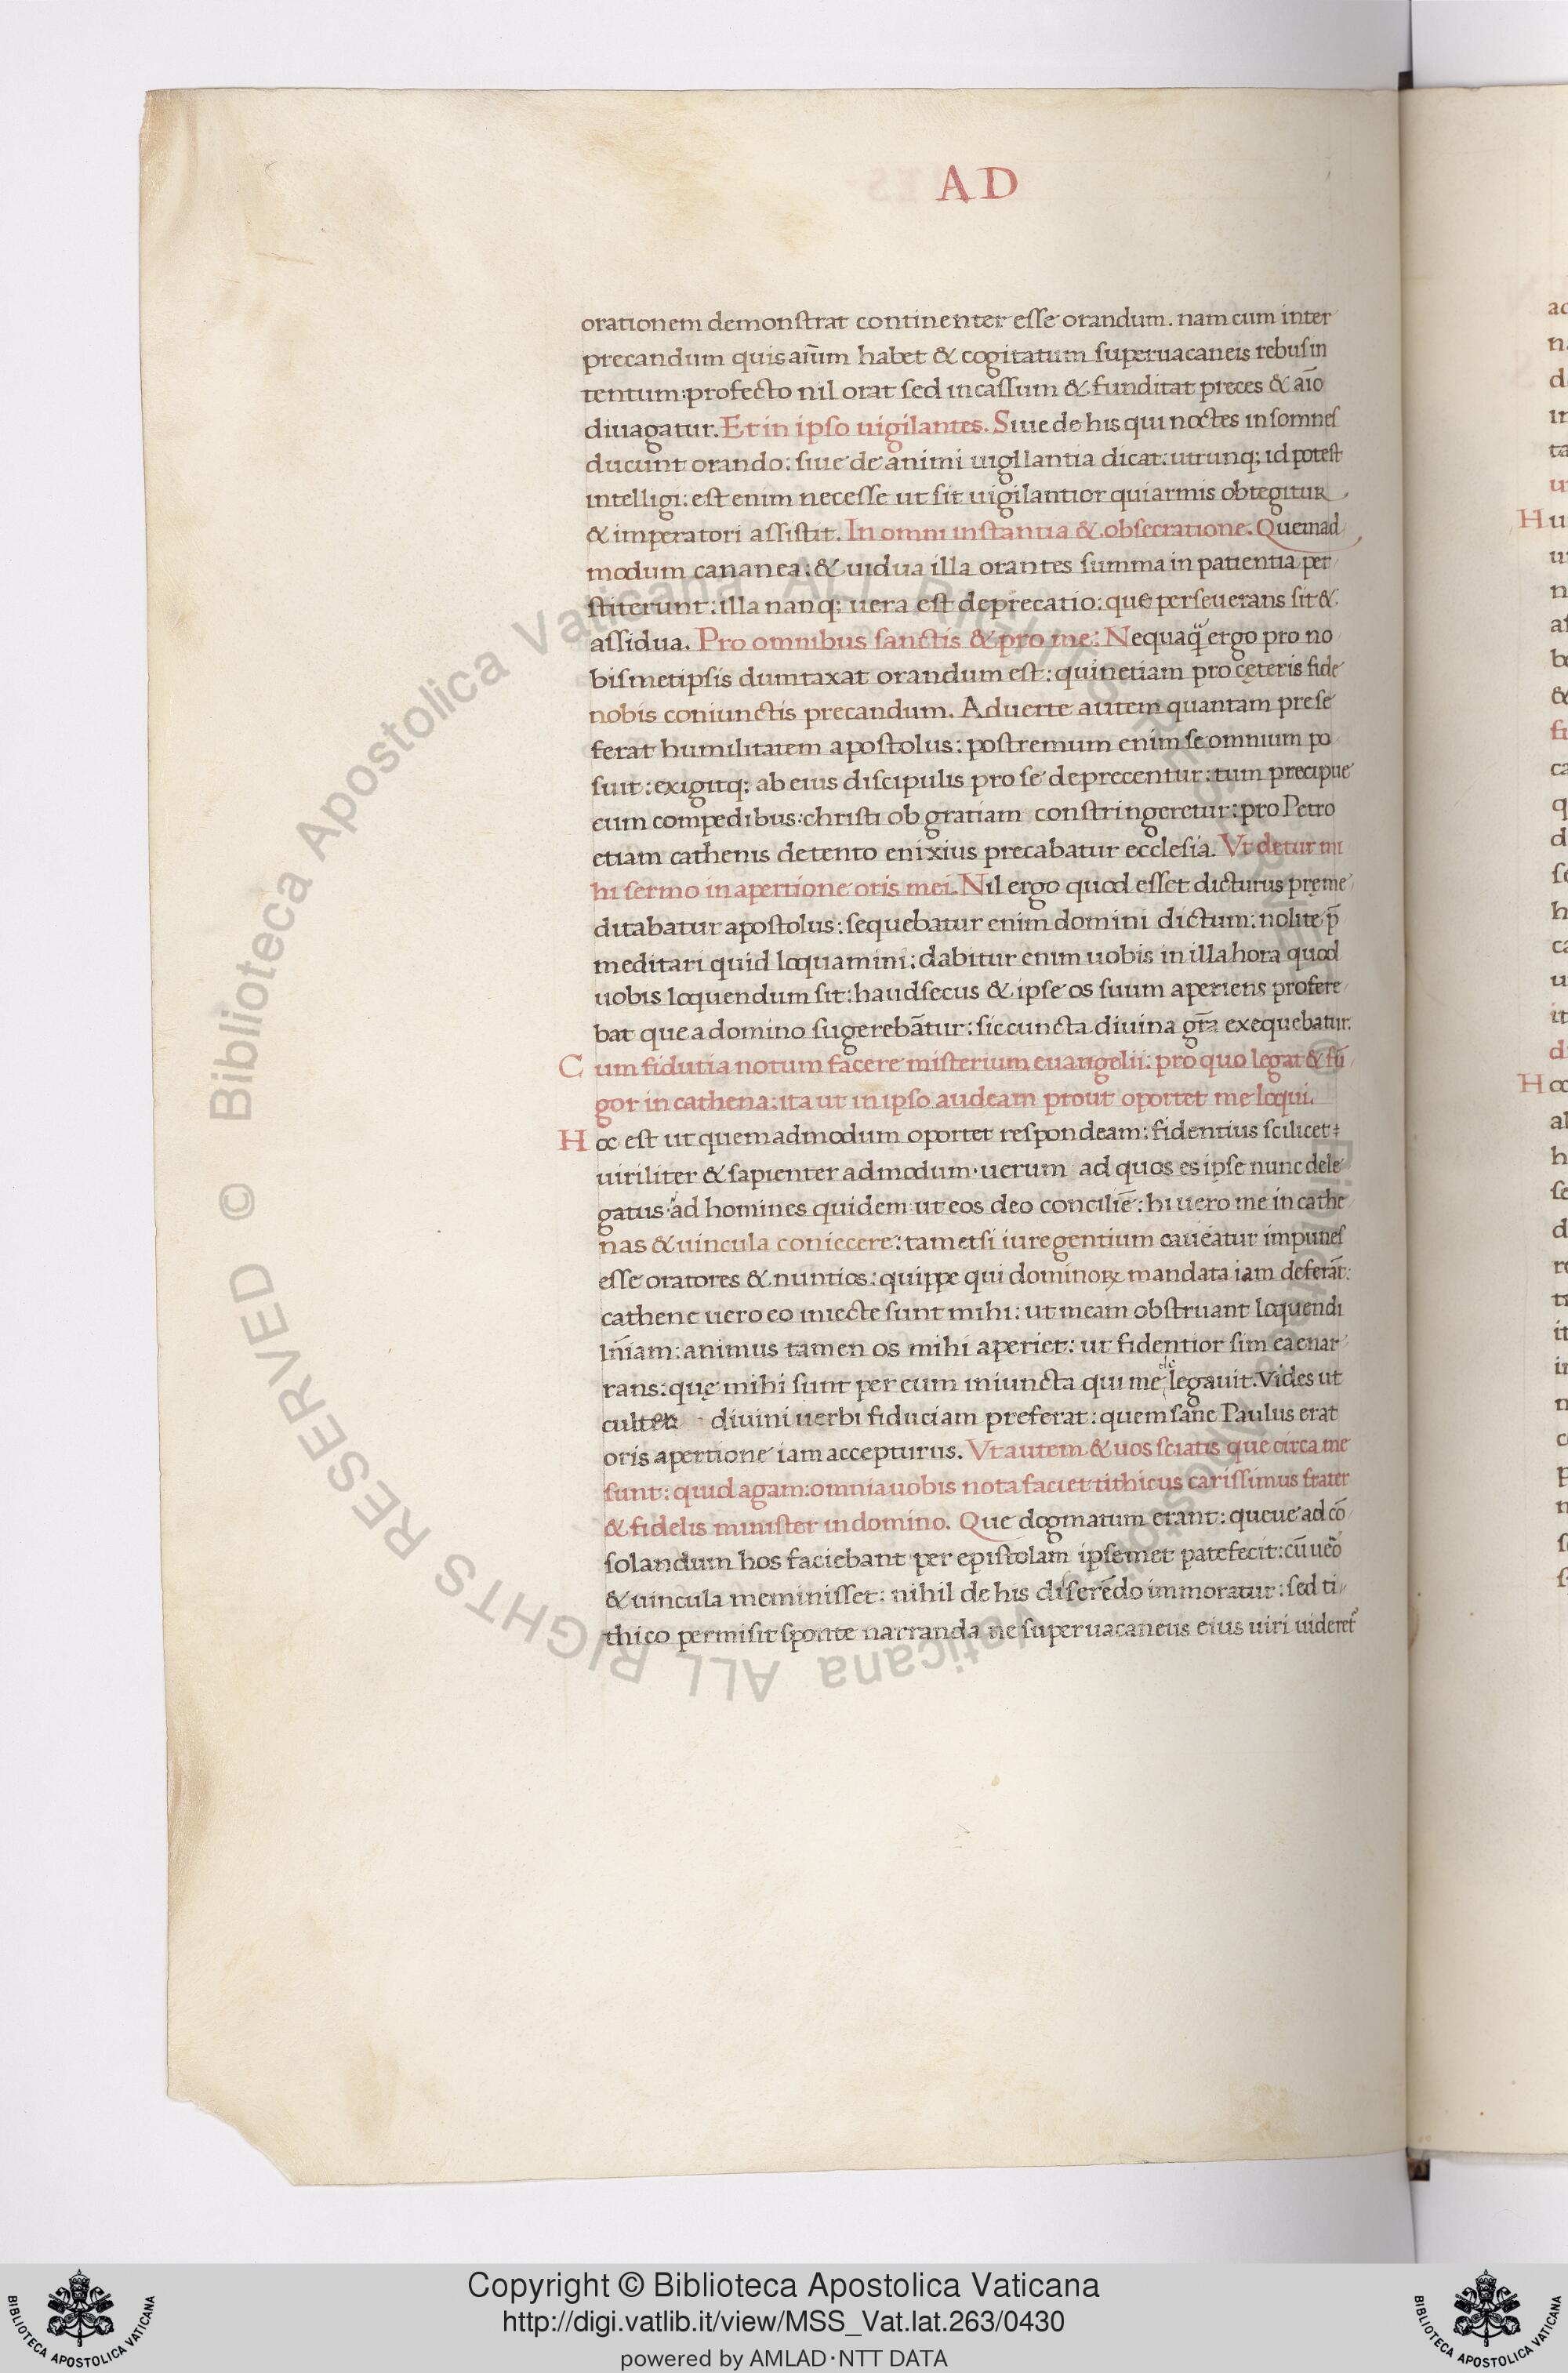 AD
orationem demonstrat continenter esse orandum. nam cum inter
precandum quis aīum habet & cogitatum superuacaneis rebus in
tentum: profecto nil orat sed incassum & funditat preces & aīo
diuagatur. Et in ipso uigilantes. Siue de his qui noctes insomnes
ducunt orando: siue de animi uigilantia dicat: utrunq; id potest
intelligi: est enim necesse ut sit uigilantior qui armis obtegitur
& imperatori assistit. In omni instantia & obsecratione. Quemad
modum cananea: & uidua illa orantes summa in patientia per
stiterunt: illa nanq; uera est deprecatio: que perseuerans sit &
assidua. Pro omnibus sanctis & pro me: Nequaq̄ ergo pro no
bismetipsis dumtaxat orandum est: quinetiam pro cęteris fide
nobis coniunctis precandum. Aduerte autem quantam prese
ferat humilitatem apostolus: postremum enim se omnium po
suit: exigitq; ab eius discipulis pro se deprecentur: tum precipue
cum compedibus: christi ob gratiam constringeretur: pro Petro
etiam cathenis detento enixius precabatur ecclesia. Vt detur mi
hi sermo in apertione oris mei. Nil ergo quod esset dicturus pręme
ditabatur apostolus: sequebatur enim domini dictum: nolite p̄
meditari quid loquamini: dabitur enim uobis in illa hora quod
uobis loquendum sit: haud secus & ipse os suum aperiens profere
bat que a domino sugerebāntur: sic cuncta diuina gr̄a exequebatur.
Cum fidutia notum facere misterium euangelii: pro quo legat & fū
gor in cathena: ita ut in ipso audeam prout oportet me loqui.
Hoc est ut quemadmodum oportet respondeam: fidentius scilicet:
uiriliter & sapienter admodum. uerum ad quos es ipse nunc dele
gatus. ad homines quidem ut eos deo conciliē: hi uero me in cathe
nas & uincula coniecere: tametsi iure gentium caueatur impunes
esse oratores & nuntios: quippe qui dominoꝝ mandata iam deferāt:
cathene uero eo iniecte sunt mihi: ut meam obstruant loquendi
ln̄iam: animus tamen os mihi aperiet: ut fidentior sim ea enar
rans: quę mihi sunt per eum iniuncta qui me delegauit. Vides ut
diuini uerbi fiduciam preferat: quem sane Paulus erat
oris apertione iam accepturus. Vt autem & uos sciatis que circa me
sunt: quid agam: omnia uobis nota faciet tithicus carissimus frater
& fidelis minister in domino. Que dogmatum erant: queue ad cō
solandum hos faciebant per epistolam ipsemet patefecit: cū ueō
& uincula meminisset: nihil de his diserēdo immoratur: sed ti
thico permisit sponte narranda ne superuacaneus eius uiri uideret᷑
© Biblioteca Apostolica Vaticana ALL RIGHTS RESERVED © Biblioteca Apostolica Vaticana ALL RIGHTS RESERVED
Copyright © Biblioteca Apostolica Vaticana
http://digi.vatlib.it/view/MSS_Vat.lat.263/0430
powered by AMLAD·NTT DATA
BIBLIOTECA APOSTOLICA VATICANA
BIBLIOTECA APOSTOLICA VATICANA